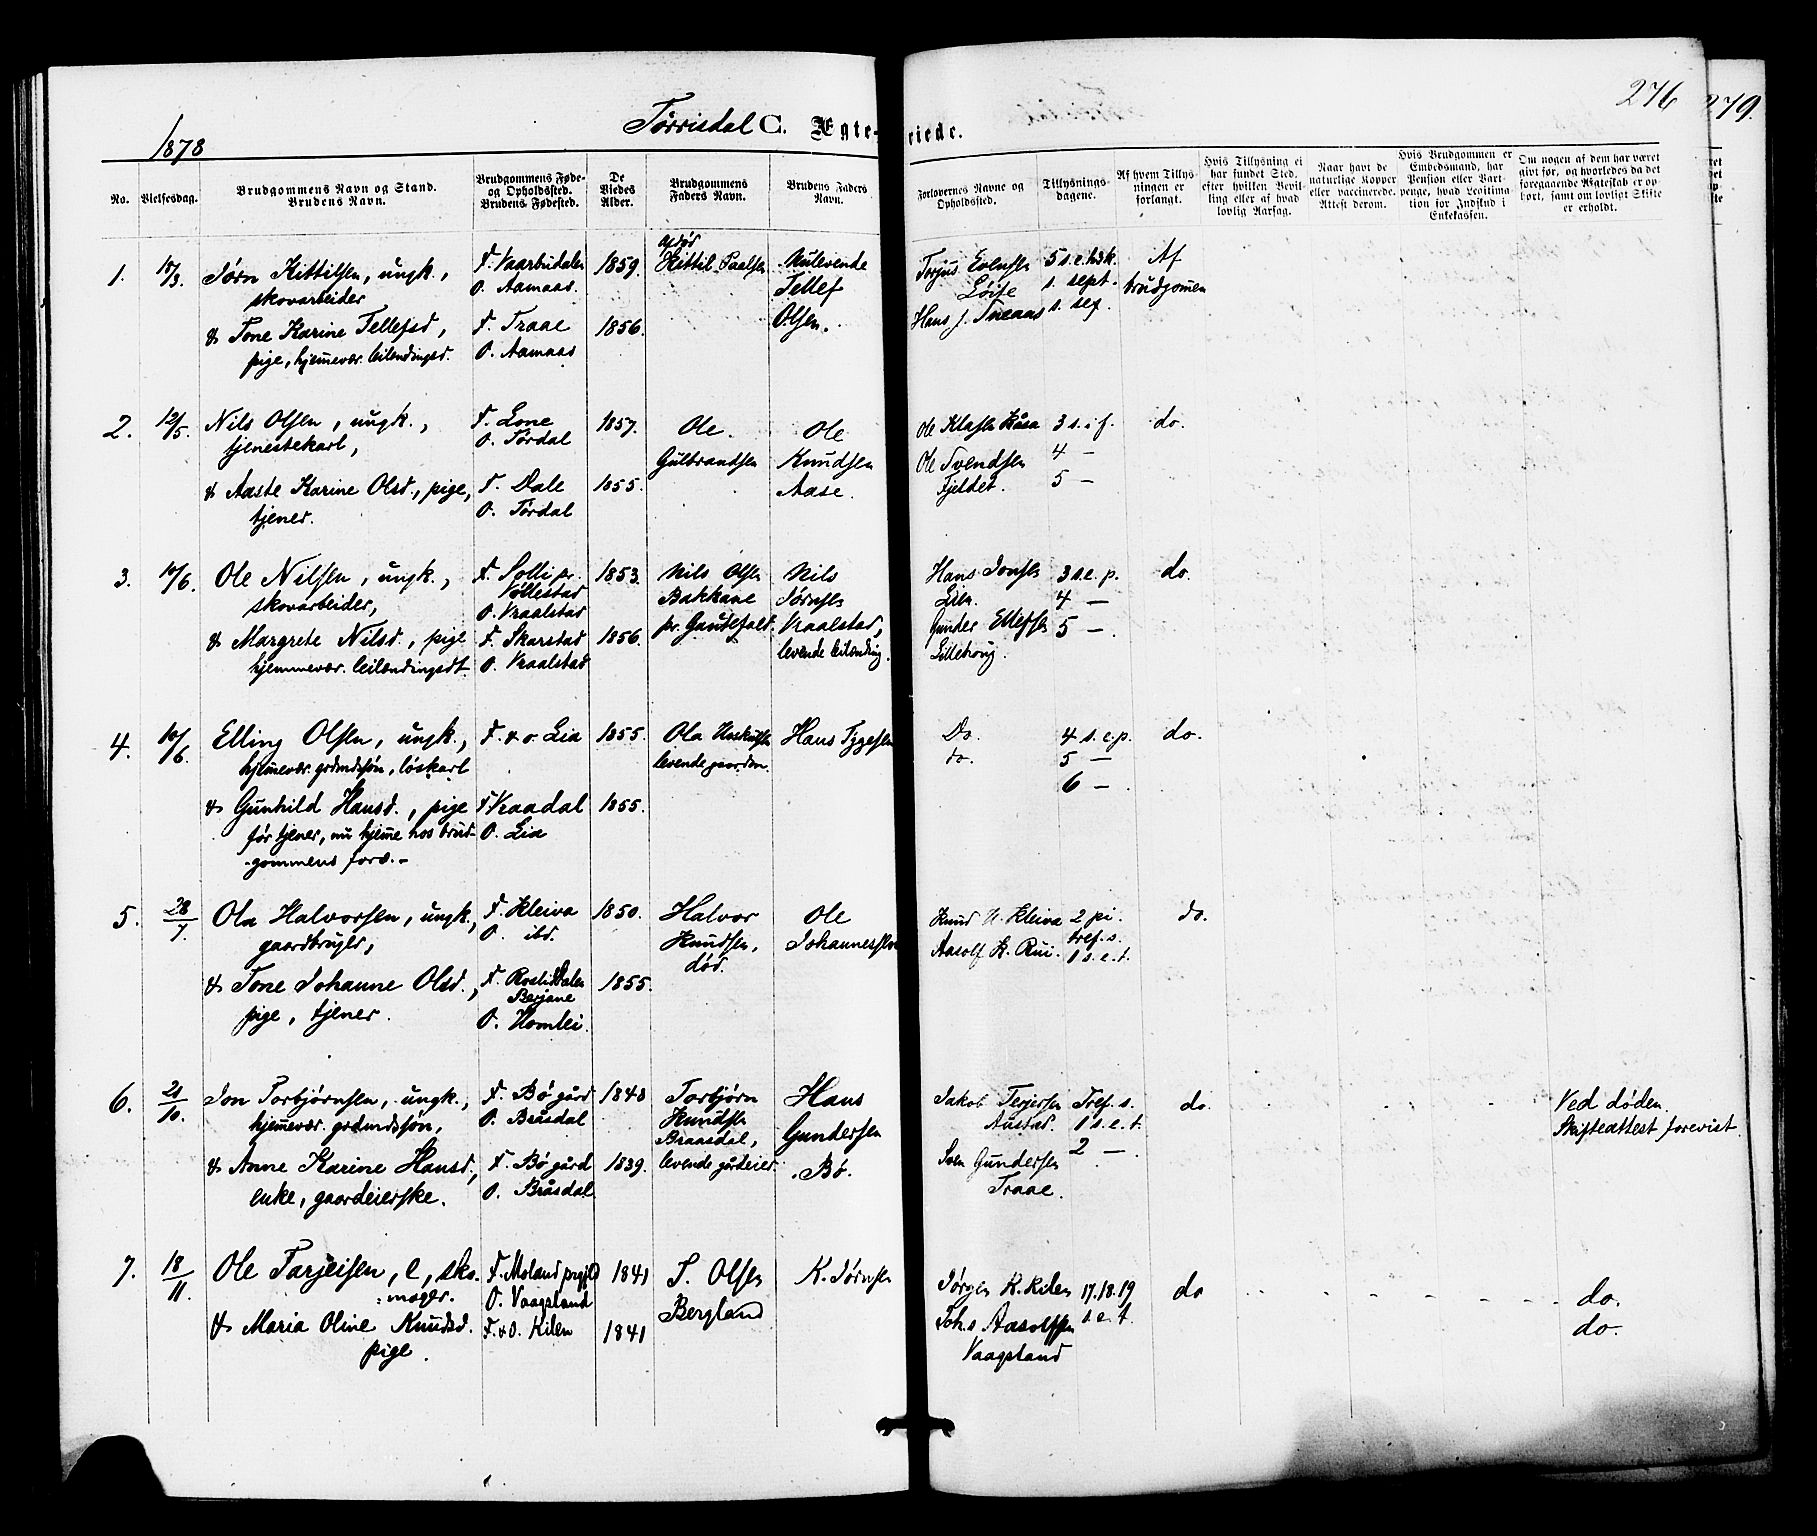 276
279.
Törrisdal C. Ægte-viede.
1878
No.
Vielsesdag.
Brudgommens Navn og Stand.
Brudens Navn.
Brudgommens Føde-
og Opholdssted.
Brudens Fødested.
De
Viedes
Alder.
Brudgommens
Faders Navn.
Brudens Faders
Navn.
Forlovernes Navne og
Opholdssted.
Tillysnings-
dagene.
Af hvem Tillys-
ningen er
forlangt.
Hvis Tillysning ei
har fundet Sted,
efter hvilken Bevil-
ling eller af hvad
lovlig Aarsag.
Naar havt de
naturlige Kopper
eller vaccinerede.
Attest derom.
Hvis Brudgommen er
Embedsmand, har
Pension eller Vart-
penge, hvad Legitima
tion for Indskud i
Enkekassen.
Om nogen af dem har været
givt før, og hvorledes da det
foregaaende Ægteskab er op-
hørt, samt om lovligt Skifte
er erholdt.
1. 10/3. Jörn Kittilsen, ungk.,
skovarbeider
& Tone Karine Tellefsd,
pige, hjemevær. leilændingsd.
F. Vaarbudalen
O. Aamaas.
F. Traae
O. Aamaas
1859.
1856.
Kittil Paalsen
Nulevende
Tellef
Olsen.
Torjus Evensen
Hans J.
5 s. e. h3k.
s. sept.
s. sex.
Af
brudgomen
2. 12/5. Nils Olsen, ungk.,
tjenestekarl,
& Aaste Karine Olsd., pige,
tjener.
F. Lone
O. Tördal
F. Dale
O. Tördal
1857.
1855.
Ole.
Gulbrandsen
Ole
Knudsen
Aase.
Ole Klasen Råsa
Ole Svendsen
Fjeldet.
3 s. i f.
4 —
5 —
do.
3. 10/6. Ole Nilsen, ungk.,
skovarbeider,
& Margrete Nilsd., pige
hjemmevær. leilændingsdt.
F. Solli pr.
Völlestad
O. Vraalstad
F. Skarstad
O. Vraalstad
1853.
1856.
Nils Olsen
Bakkane
pr. Gautefald.
Nils
Jörnsen
Vraalstad,
levende leilænding.
Hans Jonsen
Lien.
Gunder Ellefsen
3 s. e. p.
4 —
5 —
do.
4. 10/6. Elling Olsen, ungk.,
hjemevær. grdmdssön, löskarl
& Gunhild Hansd., pige
för tjener, nu hjeme hos brud-
gommens foræ.
F. & O. Lia
F. Vraadal
O. Lia
1855.
1855.
levende gaardm.
Hans Tygesen
Do.
do.
4 s. e. p.
5 —
6 —
do.
5. 28/7. Ola Halvorsen, ungk.,
gaardbruger,
& Tone Johanne Olsd.,
pige, tjener.
F. Kleiva
O. ibd.
Berjane
O. Homlei.
1850.
1855.
Halvor
Knudsen,
död.
Ole
Johannessen
Knud H. Kleiva
Aasolf K. Rui.
2 pi.
tref. s.
1 s. e. t.
do.
6. 21/10. Jon Torbjørnsen, ungk.,
hjemevær. grdmdssön,
& Anne Karine Hansd.,
enke, gaardeierske.
F. Bö gård
O. Bråsdal
F. Bö gård
O. Bråsdal
1848
1839.
Torbjørn
Knudsen
Braasdal,
levende gårdeier
Hans
Gundersen
Bö.
Jakob Terjersen
Austad.
Sven Gundersen
Traae.
Tref. s.
1 s. e. t.
2 —
do.
Ved döden.
Skifteattest forevist.
7. 18/11. Ole Tarjeisen, e, sko-
mager.
& Maria Oline Knudsd.
pige.
F. Moland prgjld
O. Vaagsland
F. & O. Kilen
1841
1841
T. Olsen
Bergland
K. Jörnsen
Jörgen K. Kilen
Johs Aasolfsen
Vaagsland
17. 18. 19
s. e. t.
do
do.
do.